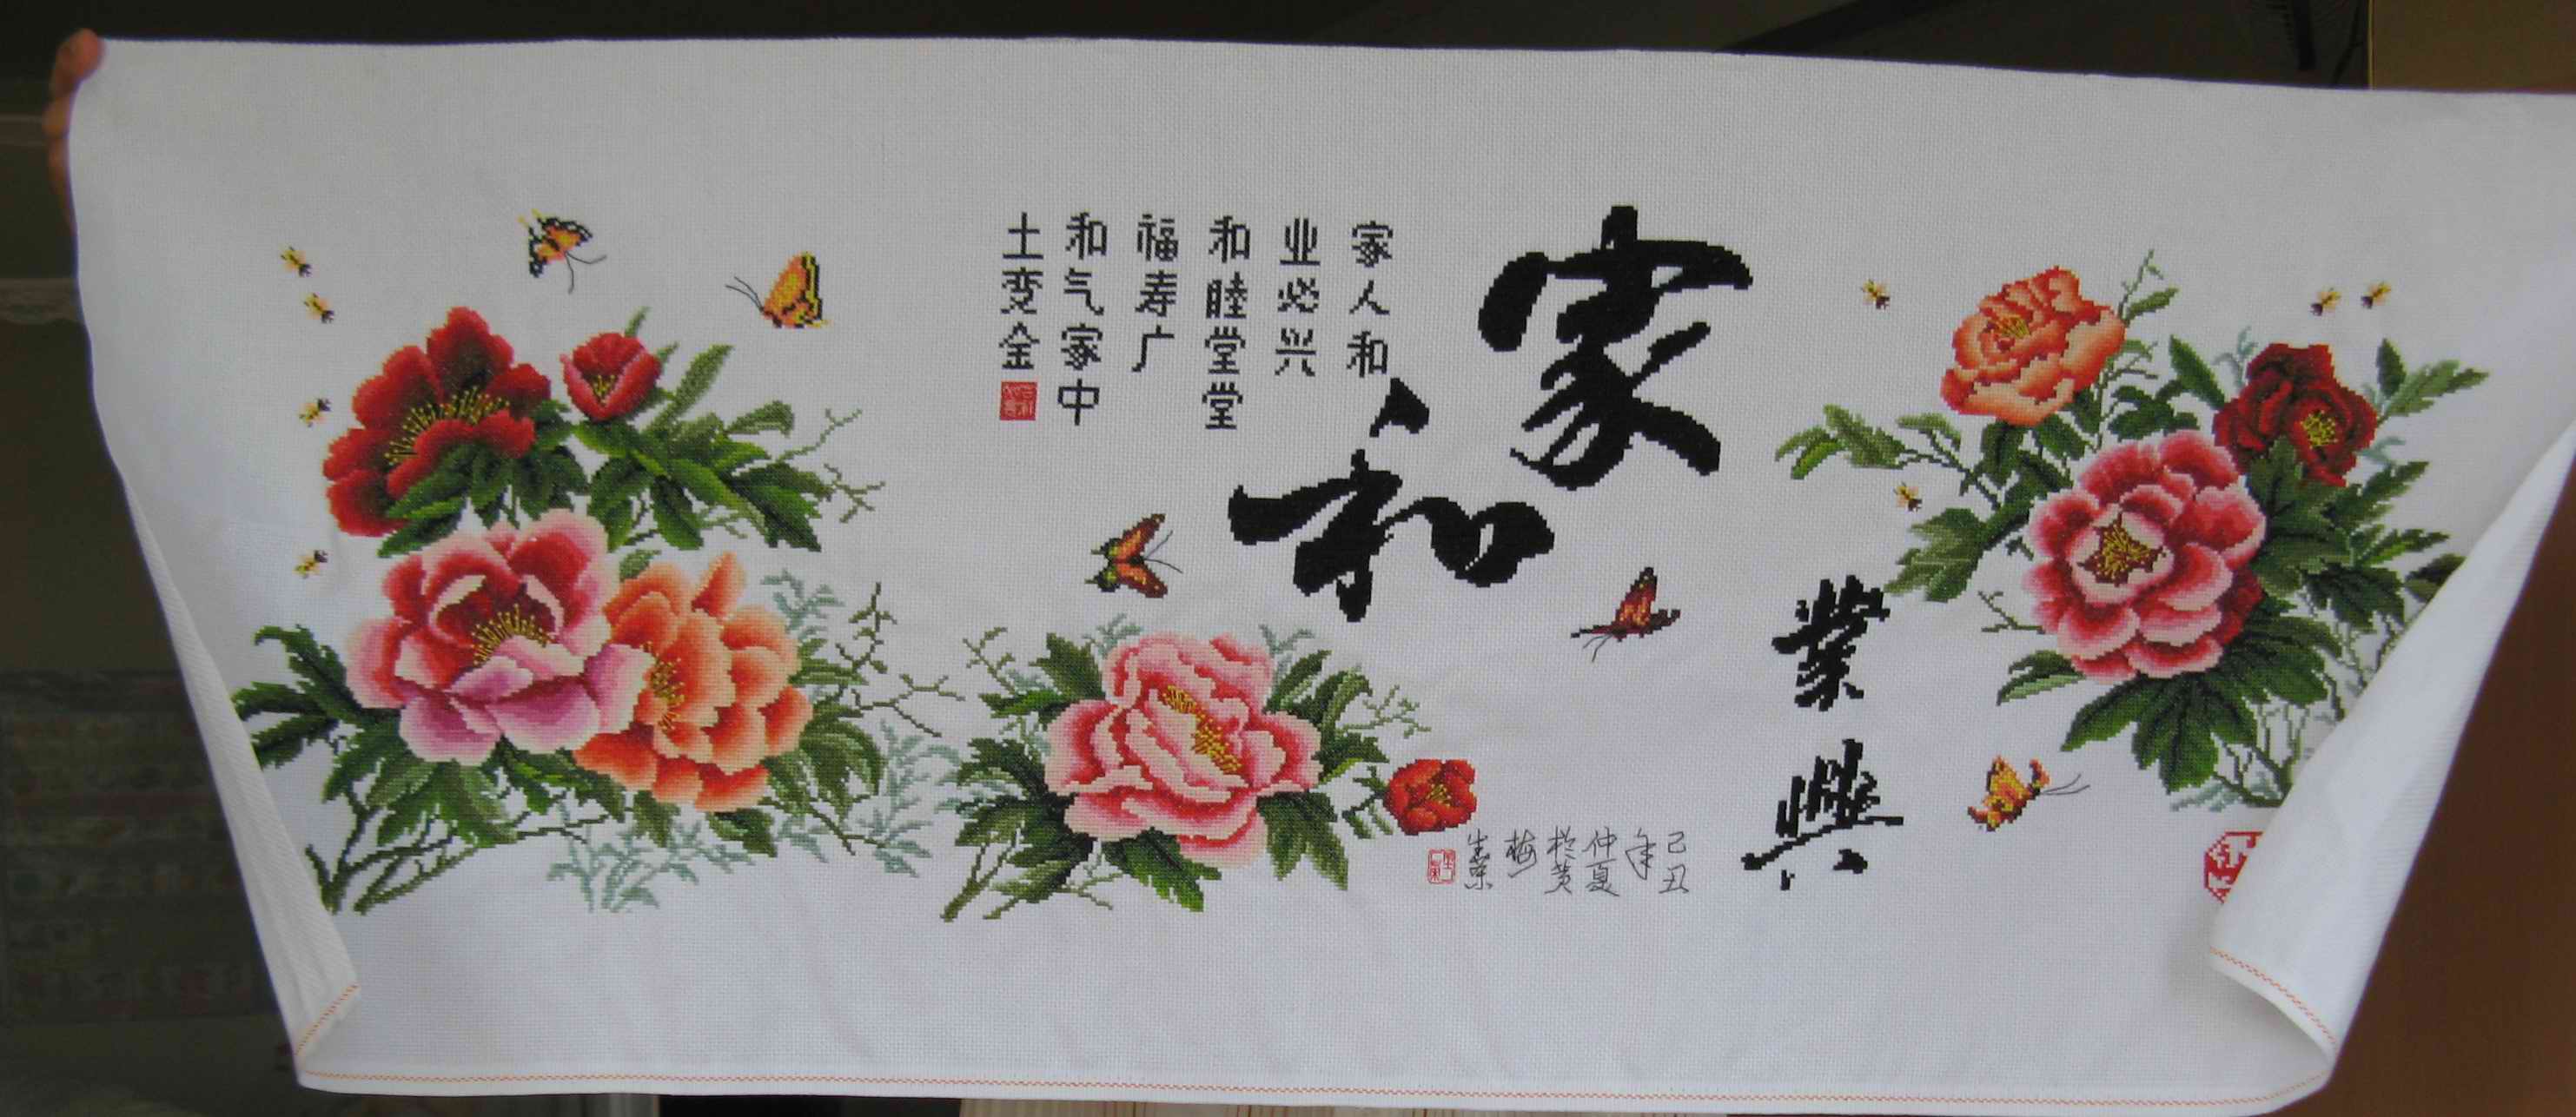 家和
業興
家人和
业必兴
和睦堂堂
福寿广
和气家中
土变金
己丑
年
仲夏
於黄
梅